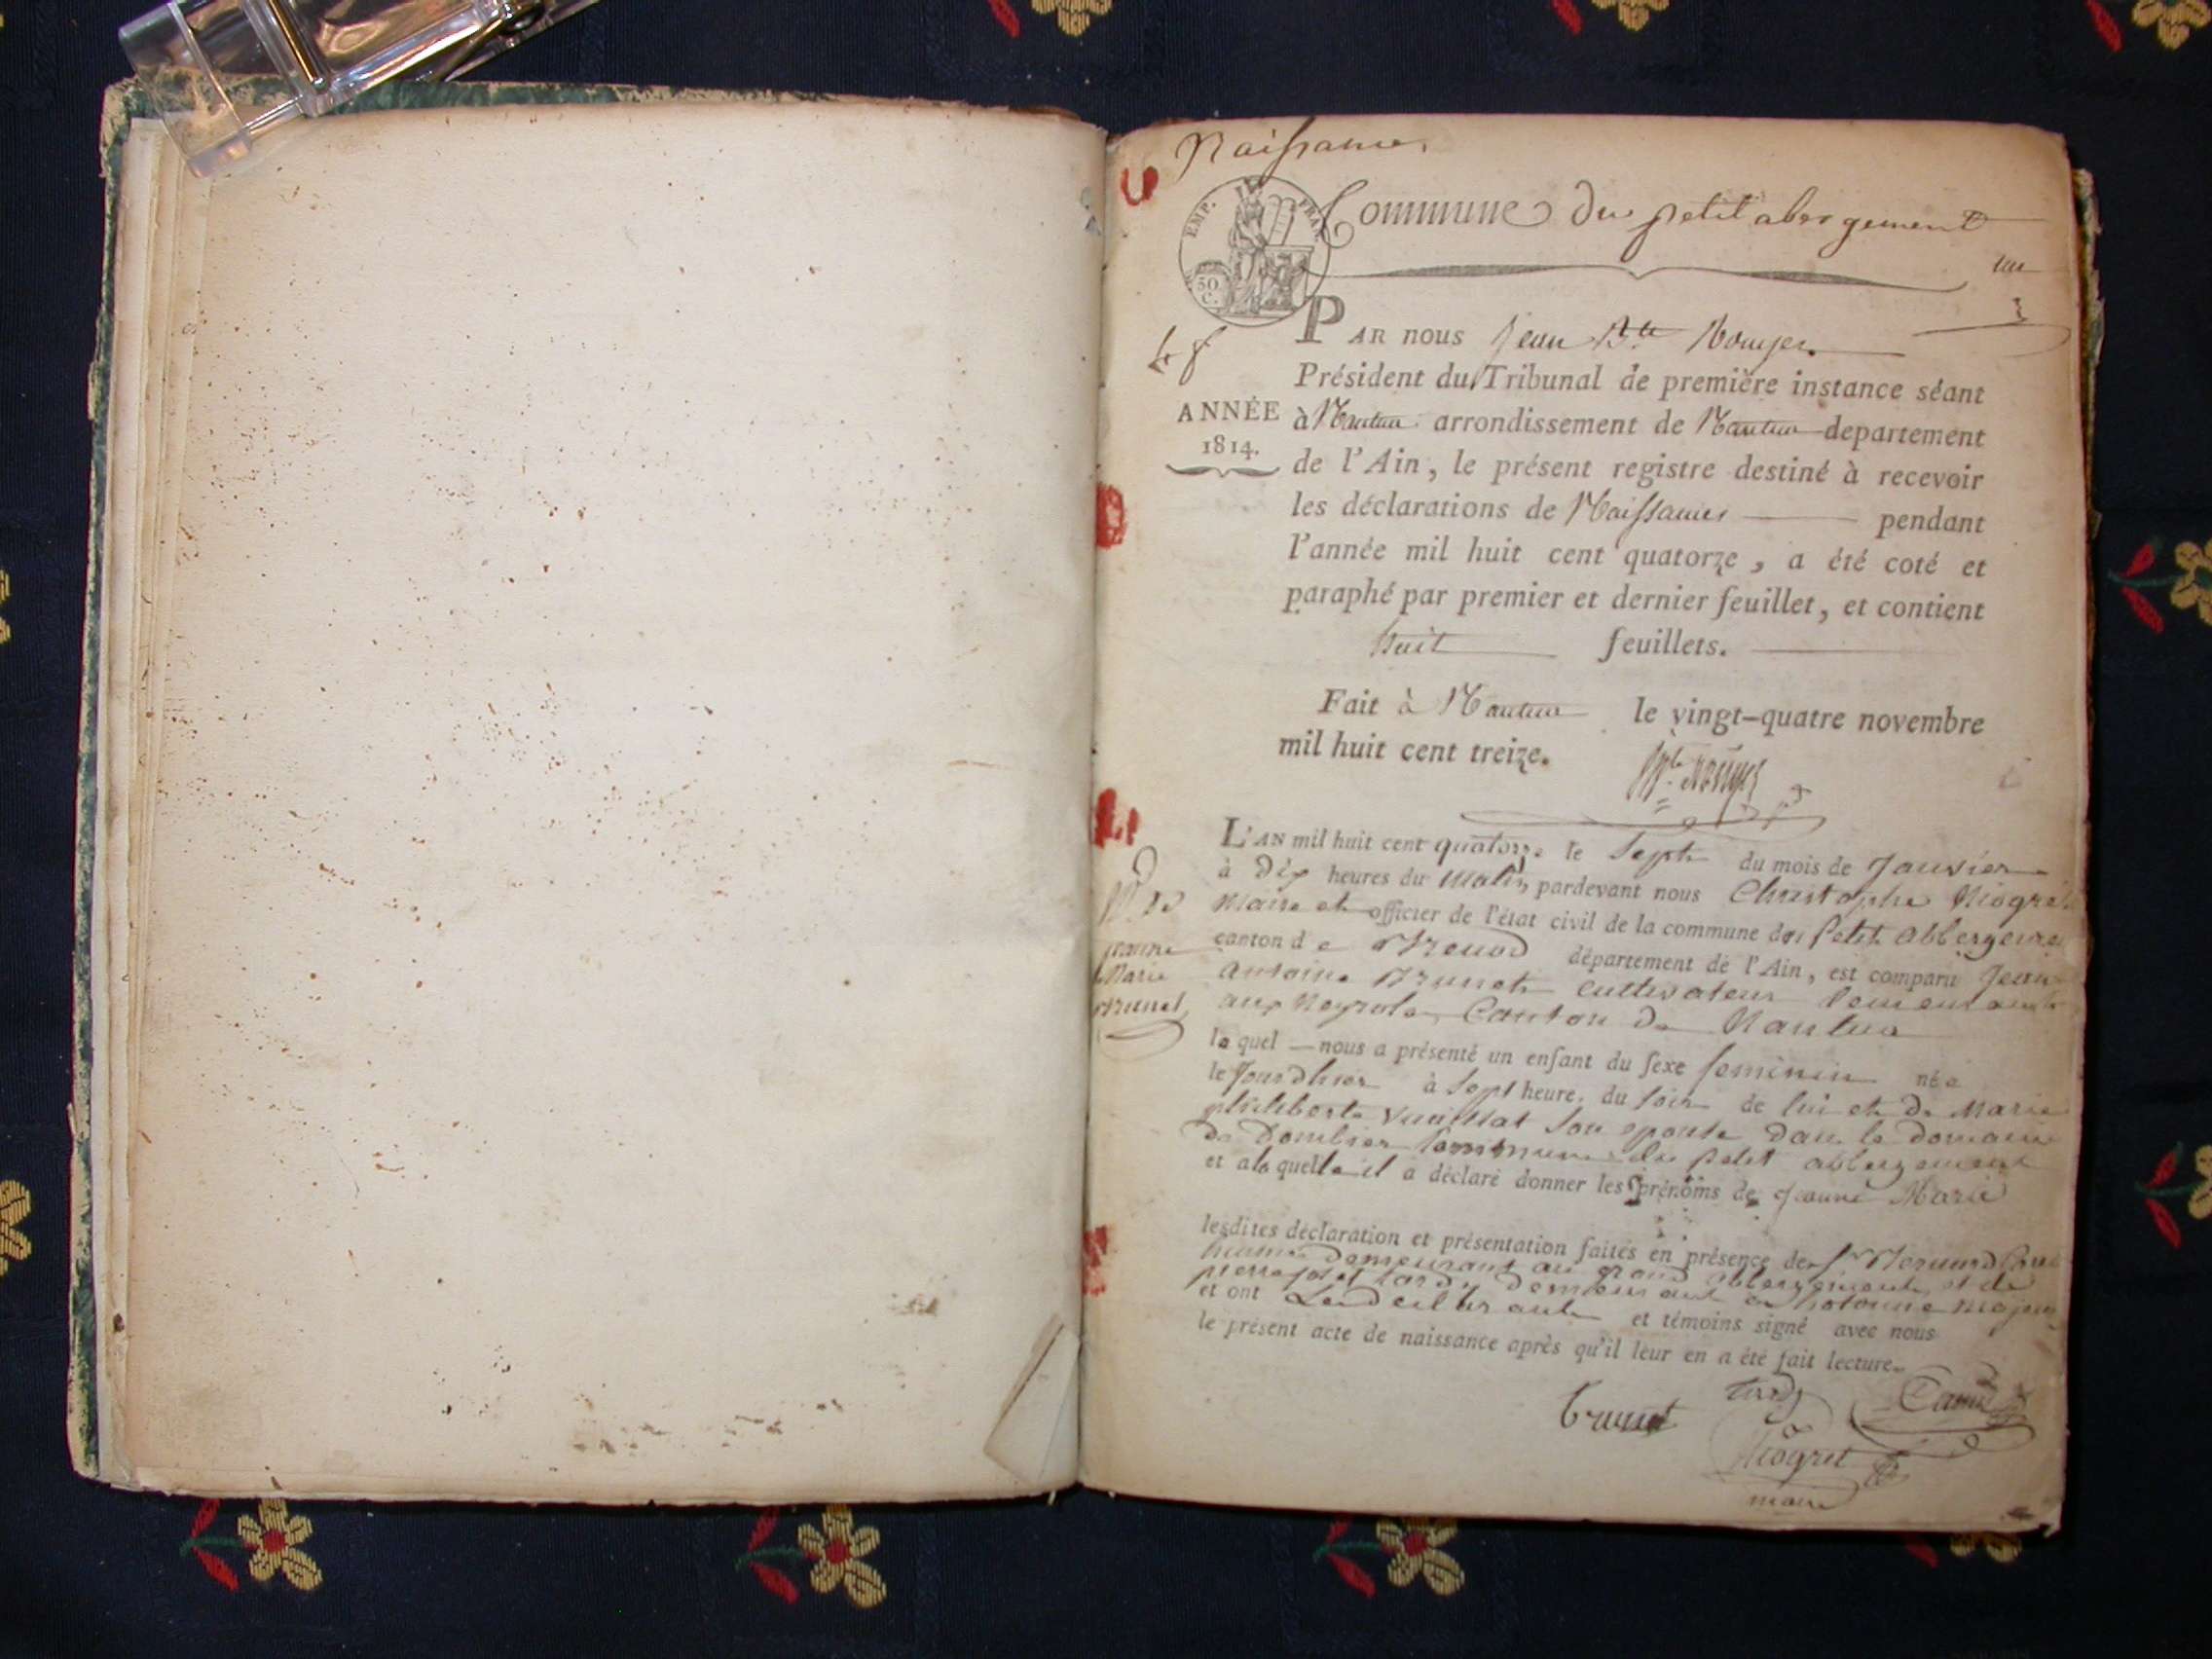 Naissances
EMP. FRAN.
30 C.
Commune du petit abergement
un
PAR nous jean Bte Rouyer
Président du Tribunal de première instance séant
ANNÉE
1814.
à Nantua arrondissement de Nantua departement
de l'Ain, le présent registre destiné à recevoir
les déclarations de Naissances pendant
l'année mil huit cent quatorze, a été coté et
paraphé par premier et dernier feuillet, et contient
huit feuillets.
Fait à Nantua le vingt-quatre novembre
mil huit cent treize.
L'AN mil huit cent quatorze le Sept du mois de Janvier
à dix heures du matin pardevant nous Christophe Niogret
maire et officier de l'état civil de la commune du Petit abbergement
canton de Brenod département de l'Ain, est comparu Jean
antoine Brunet cultivateur demeurant
aux Neyrolles Canton de Nantua
Nce de
jeanne
Marie
Brunet
lequel nous a présenté un enfant du sexe feminin née
le Jourdhier à Sept heure. du soir de lui et de Marie
philiberte Vuaillat son epouse dans le domaine
de Dombier Commune du petit abbergement
et a laquelle il a déclaré donner les prénoms de jeanne Marie
lesdites déclaration et présentation faites en présence de Sr
demeurant au grand abbergement et de
pierre joseph tardy demeurant a hotonne majeurs
et ont et témoins signé avec nous
le présent acte de naissance après qu'il leur en a été fait lecture.
brunet tardy
Niogret
maire